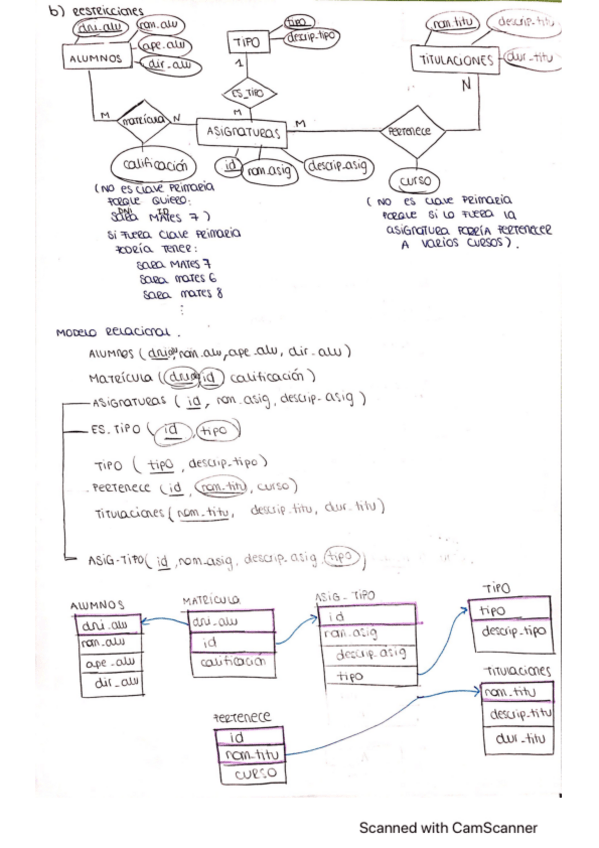 b) RESTRICCIONES
dni_alu nom.alu
ape_alu
dir_alu
ALUMNOS
TIPO
tipo
descrip_tipo
nom_titu descrip_titu
TITULACIONES
dur_titu
1
ES_TIPO
M
N
M matrícula N
ASIGNATURAS
M
PERTENECE
calificación
id nom.asig descrip.asig
curso
(NO ES CLAVE PRIMARIA
PORQUE QUIERO:
SARA MATES 7)
SI FUERA CLAVE PRIMARIA
PODRÍA TENER:
SARA MATES 7
SARA MATES 6
SARA MATES 8
⋮
(NO ES CLAVE PRIMARIA
PORQUE SI LO FUERA LA
ASIGNATURA PODRÍA PERTENECER
A VARIOS CURSOS).
MODELO RELACIONAL.
ALUMNOS (dni_alu, nom.alu, ape.alu, dir.alu)
MATRÍCULA (dni_alu, id calificación)
ASIGNATURAS (id, nom.asig, descrip-asig)
ES.TIPO (id, tipo)
TIPO (tipo, descrip-tipo)
PERTENECE (id, nom_titu, curso)
Titulaciones (nom_titu, descrip_titu, dur_titu)
ASIG-TIPO (id, nom.asig, descrip.asig tipo)
ALUMNOS
dni.alu
nom-alu
ape-alu
dir-alu
MATRÍCULA
dni-alu
id
calificación
ASIG-TIPO
id
nom.asig
descrip.asig
tipo
TIPO
tipo
descrip-tipo
Titulaciones
nom-titu
descrip-titu
dur-titu
PERTENECE
id
nom-titu
CURSO
Scanned with CamScanner